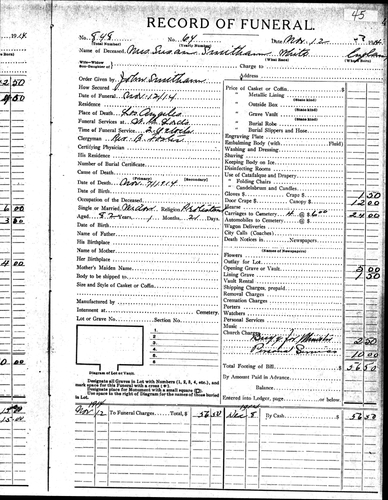 45
RECORD OF FUNERAL.
No. 848 No. 64 Date Nov. 12 1914
(Total Number) (Yearly Number)
Name of Deceased, Mrs Susan Smitham White
(What Race) (Where Born)
Charge to
Address
Order Given by John Smitham
How Secured
Date of Funeral Nov 12/14
Residence
Place of Death Los Angeles
Funeral Services at
Time of Funeral Service 2 Oclock
Clergyman Rev.
Certifying Physician
His Residence
Number of Burial Certificate
Cause of Death
(Primary) (Secondary)
Date of Death Nov 1914
Occupation of the Deceased
Single or Married Widow Religion Protestant
Aged 82 Years, 1 Months, 21 Days.
Date of Birth
Name of Father
His Birthplace
Name of Mother
Her Birthplace
Mother's Maiden Name
Body to be shipped to
Size and Style of Casket or Coffin
Manufactured by
Interment at Cemetery.
Lot or Grave No. Section No.
1
2
3
4
5
6
Diagram of Lot or Vault.
Designate all Graves in Lot with Numbers (1, 2, 3, 4, etc.), and mark space for this Funeral with a cross
Designate place for Monument with a small square
Use space to the right of Diagram for the names of those buried in Lot.
Price of Casket or Coffin $
Metallic Lining
(State kind)
Outside Box
(State kind)
Grave Vault
(State kind)
Burial Robe
(State kind)
Burial Slippers and Hose
Engraving Plate
Embalming Body (with Fluid)
Washing and Dressing
Shaving
Keeping Body on Ice
Disinfecting Rooms
Use of Catafalque and Drapery
" Folding Chairs
" Candelabrum and Candles
Gloves $ Crape $ 1 50
Door Crape $ 12 00
Hearse
Carriages to Cemetery 4 @ $ 6.00 24 00
Automobiles to Cemetery @ $
Wagon Deliveries
City Calls (Coaches)
Death Notices in Newspapers
(Names of Newspapers)
Flowers
Outlay for Lot
Opening Grave or Vault 5 00
Lining Grave 1 50
Vault Rental
Shipping Charges, prepaid
Removal Charges
Cremation Charges
Porters
Watchers
Personal Services
Music
Church Charges
Buggy for Minister 2 50
Personal Services 10 00
Total Footing of Bill $ 56 50
By Amount Paid in Advance $
Balance $
Entered into Ledger, page or below.
1914 Nov 12 To Funeral Charges, Total, $ 56 50 Dec 8 By Cash $ 56 50